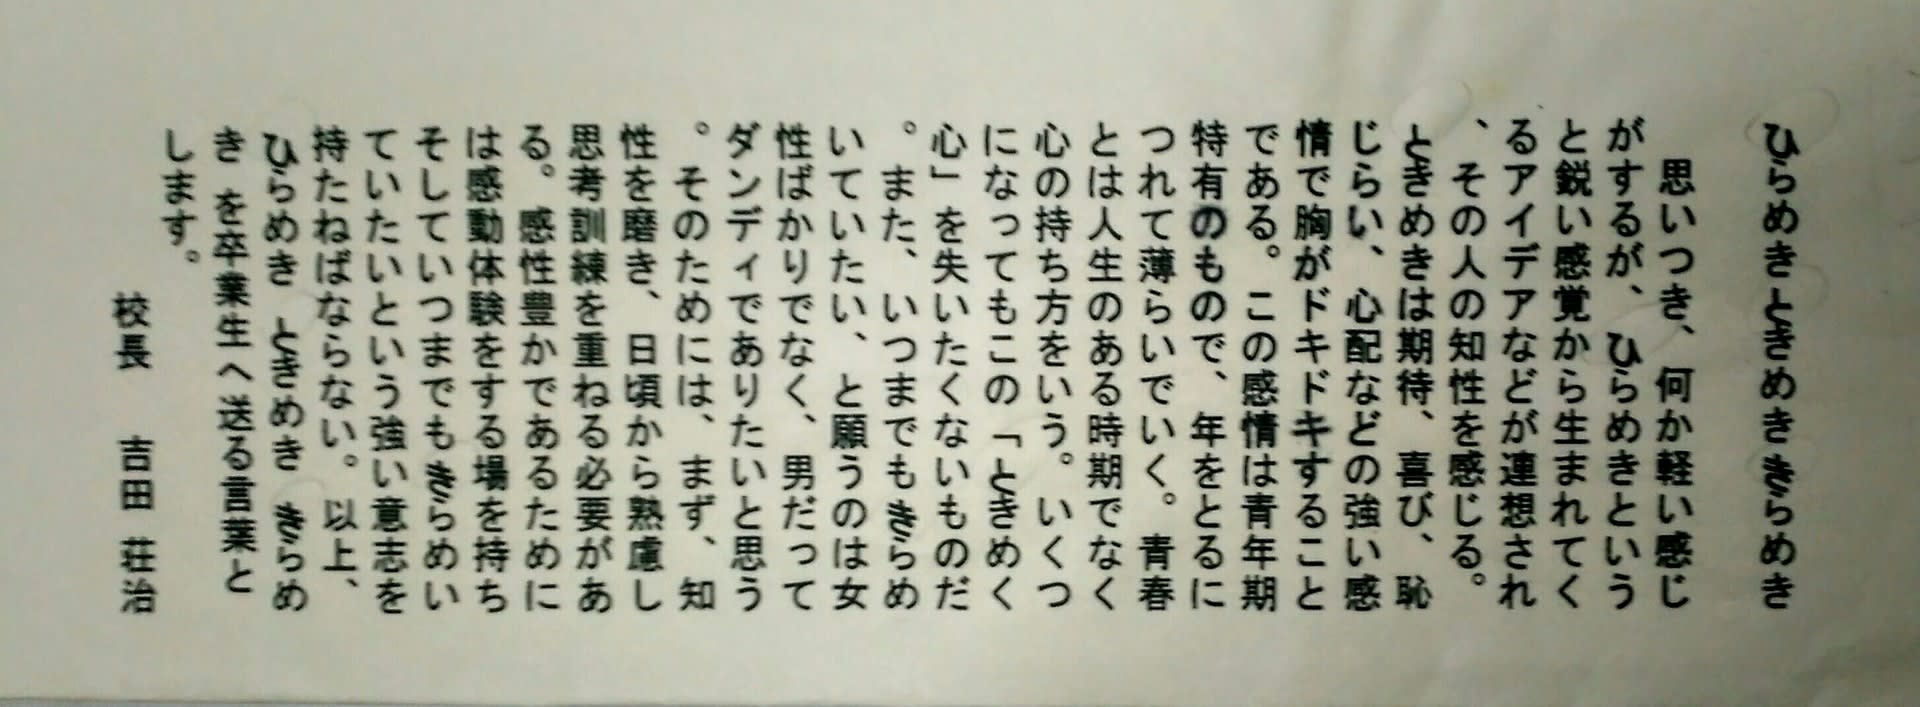 ひらめきときめききらめき
思いつき、何か軽い感じ
がするが、ひらめきという
と鋭い感覚から生まれてく
るアイデアなどが連想され
、その人の知性を感じる。
ときめきは期待、喜び、恥
じらい、心配などの強い感
情で胸がドキドキすること
である。この感情は青年期
特有のもので、年をとるに
つれて薄らいでいく。青春
とは人生のある時期でなく
心の持ち方をいう。いくつ
になってもこの「ときめく
心」を失いたくないものだ
。また、いつまでもきらめ
いていたい、と願うのは女
性ばかりでなく、男だって
ダンディでありたいと思う
。そのためには、まず、知
性を磨き、日頃から熟慮し
思考訓練を重ねる必要があ
る。感性豊かであるために
は感動体験をする場を持ち
そしていつまでもきらめい
ていたいという強い意志を
持たねばならない。以上、
ひらめき ときめき きらめ
き を卒業生へ送る言葉と
します。
校長 吉田 荘治